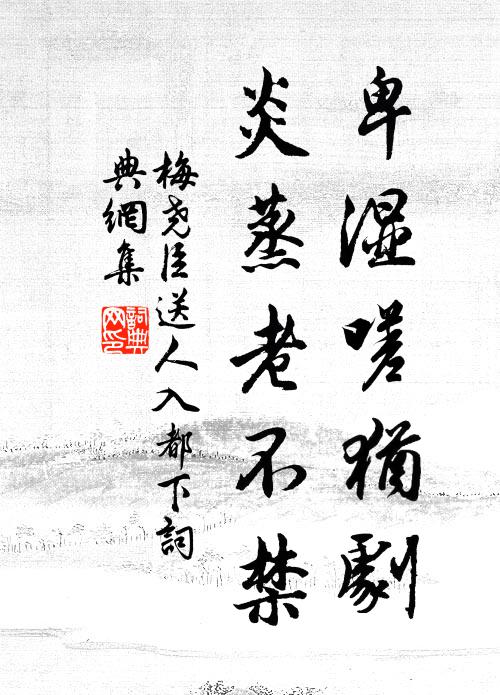 卑湿嗟猶劇
炎蒸老不禁
梅堯臣送人入都下詞
典網集
詞典
网印